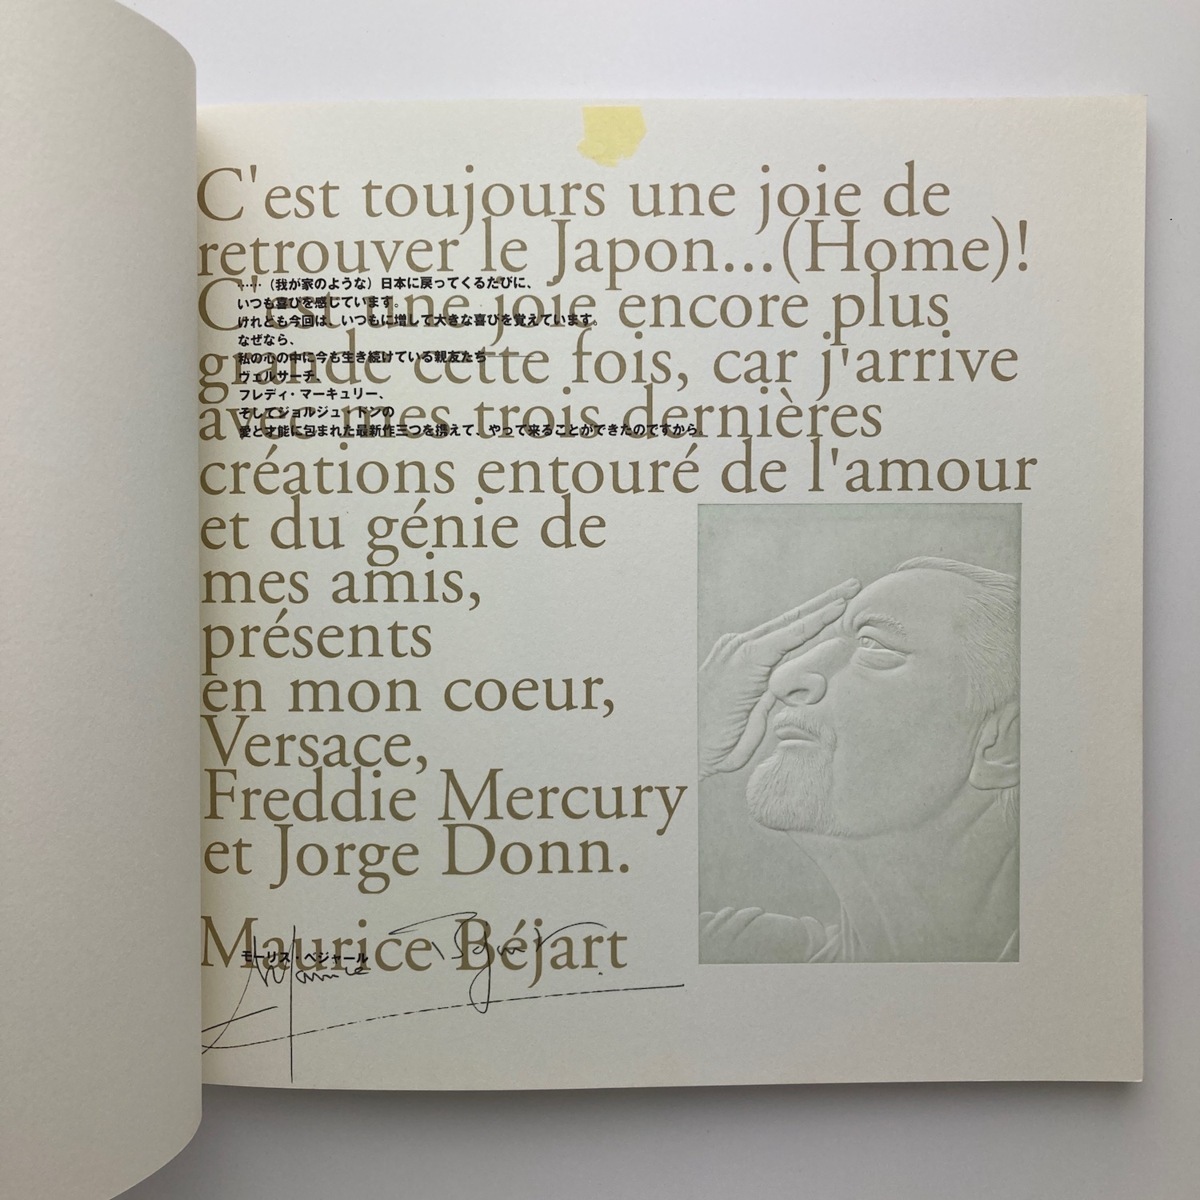 C'est toujours une joie de
retrouver le Japon...(Home)!
C'est une joie encore plus
grande cette fois, car j'arrive
avec mes trois dernières
créations entouré de l'amour
et du génie de
mes amis,
présents
en mon coeur,
Versace,
Freddie Mercury
et Jorge Donn.
Maurice Béjart
……（我が家のような）日本に戻ってくるたびに、
いつも喜びを感じています。
けれども今回は、いつもに増して大きな喜びを覚えています。
なぜなら、
私の心の中に今も生き続けている親友たち
ヴェルサーチ、
フレディ・マーキュリー、
そしてジョルジュ・ドンの
愛と才能に包まれた最新作三つを携えて、やって来ることができたのですから
モーリス・ベジャール
Maurice Béjart